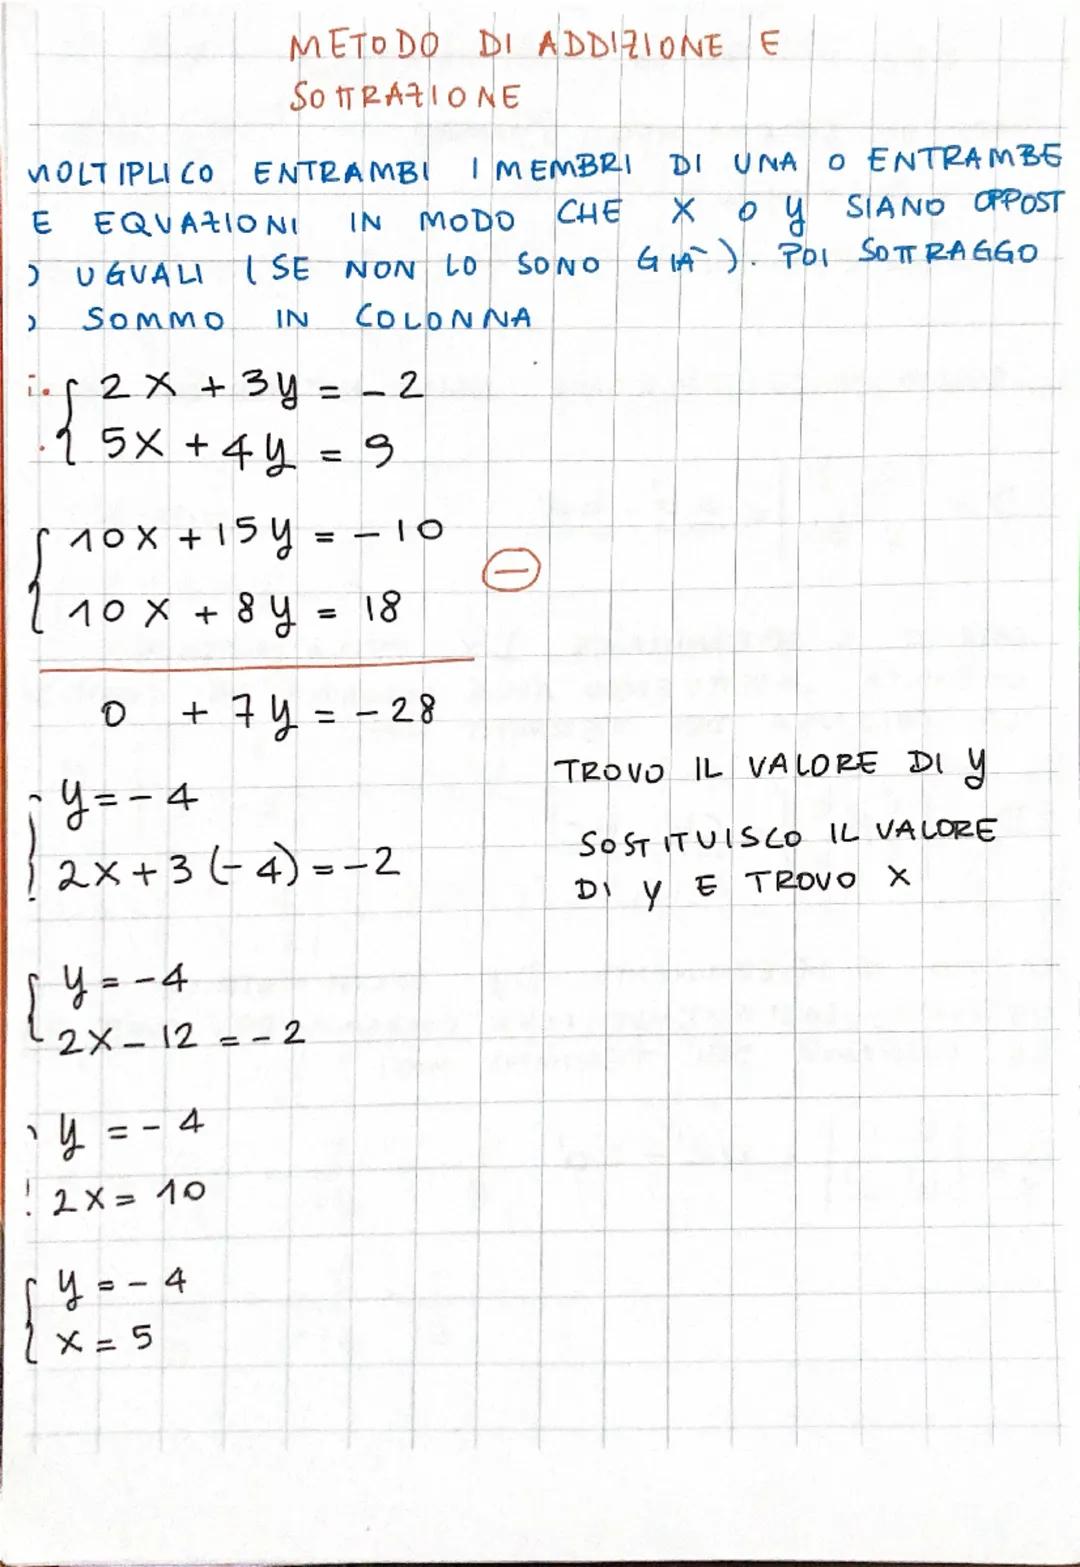 METODO DI ADDIZIONE E
SOTTRAZIONE
MOLTIPLICO ENTRAMBI I MEMBRI DI UNA O ENTRAMBE
E EQUAZIONI IN MODO CHE X O y SIANO OPPOST
UGUALI (SE NON LO SONO GIÀ). POI SOTTRAGGO
SOMMO IN COLONNA
{ 2x + 3y = -2
5x + 4y = 9
{ 10x + 15y = -10
10x + 8y = 18
−
0 + 7y = -28
TROVO IL VALORE DI y
y = -4
2x + 3(-4) = -2
SOSTITUISCO IL VALORE
DI y E TROVO X
{ y = -4
2x - 12 = -2
y = -4
2x = 10
{ y = -4
x = 5